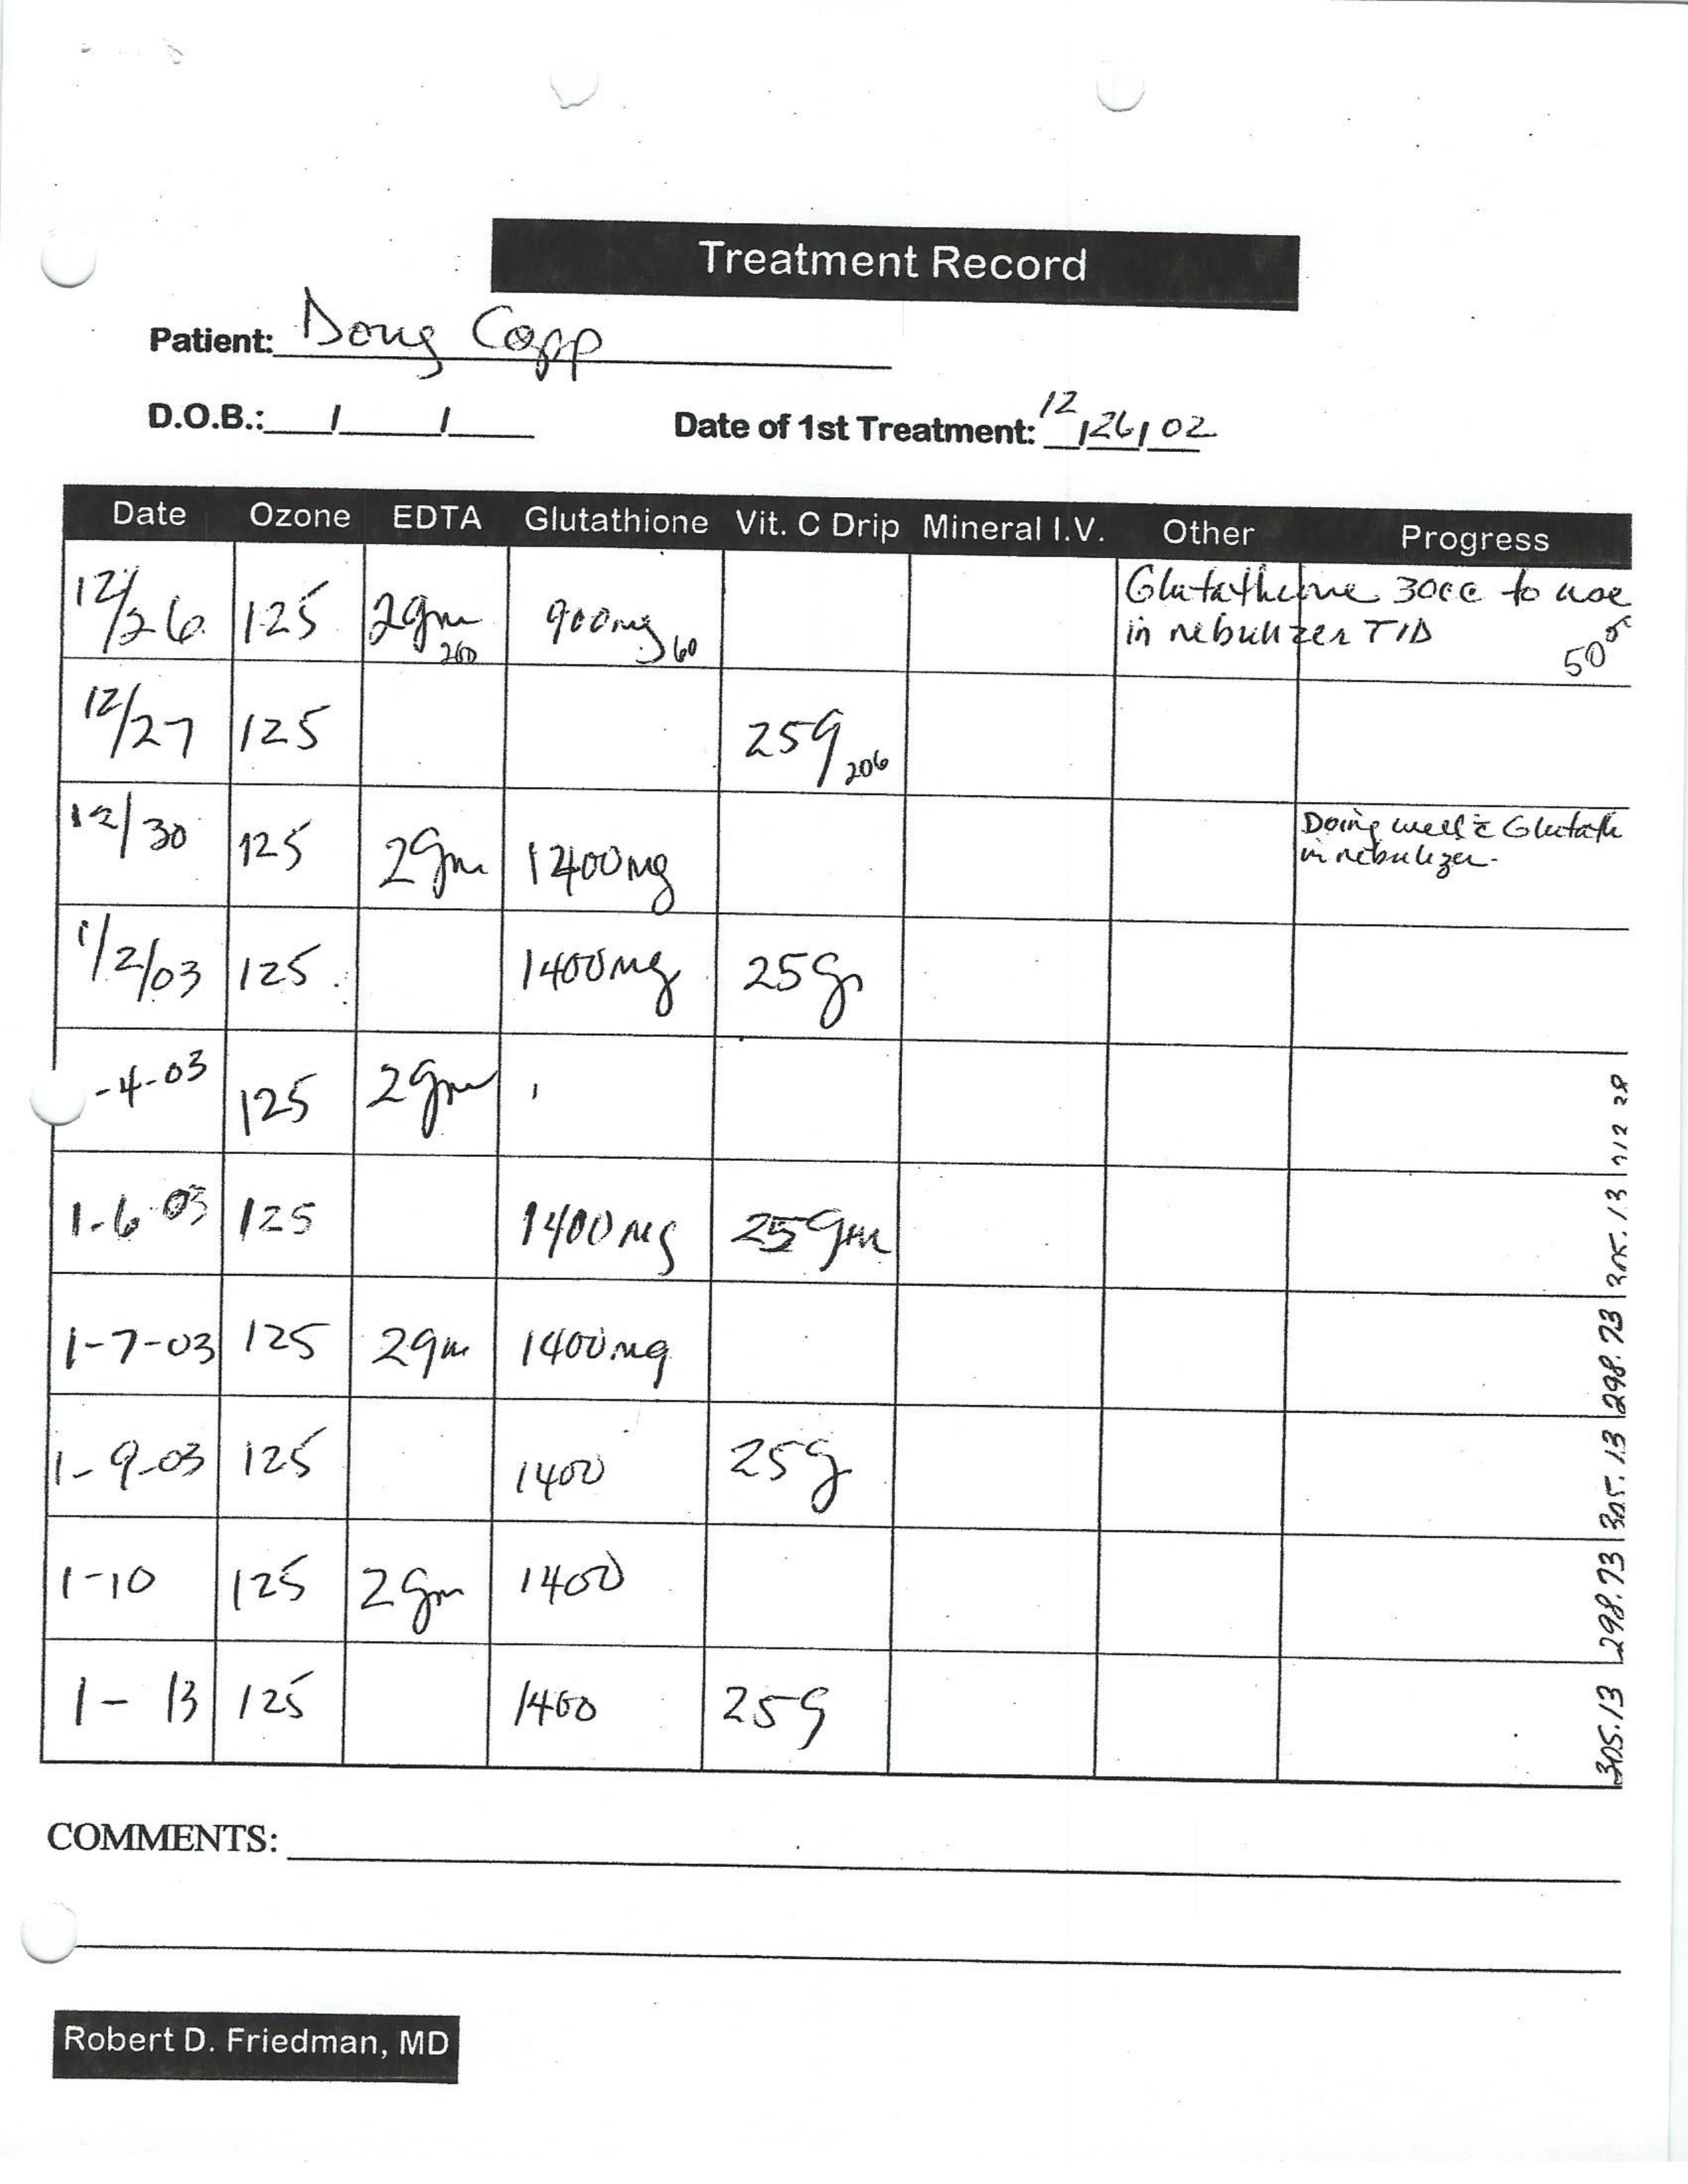 Treatment Record
Patient: Doug Copp
D.O.B.: / / Date of 1st Treatment: 12/26/02
Date Ozone EDTA Glutathione Vit. C Drip Mineral I.V. Other Progress
12/26 125 2gm 260 900mg 60 Glutathione 30cc to use
in nebulizer TID
50
12/27 125 25g 206
12/30 125 2gm 1400mg Doing well c̄ Glutath
in nebulizer-
1/2/03 125 1400mg 25g
-4-03 125 2gm
1-6-03 125 1400mg 25gm 305.13
1-7-03 125 2gm 1400mg 298.73
1-9-03 125 1400 25g 305.13
1-10 125 2gm 1400 298.73
1-13 125 1400 25g 305.13
COMMENTS:
Robert D. Friedman, MD